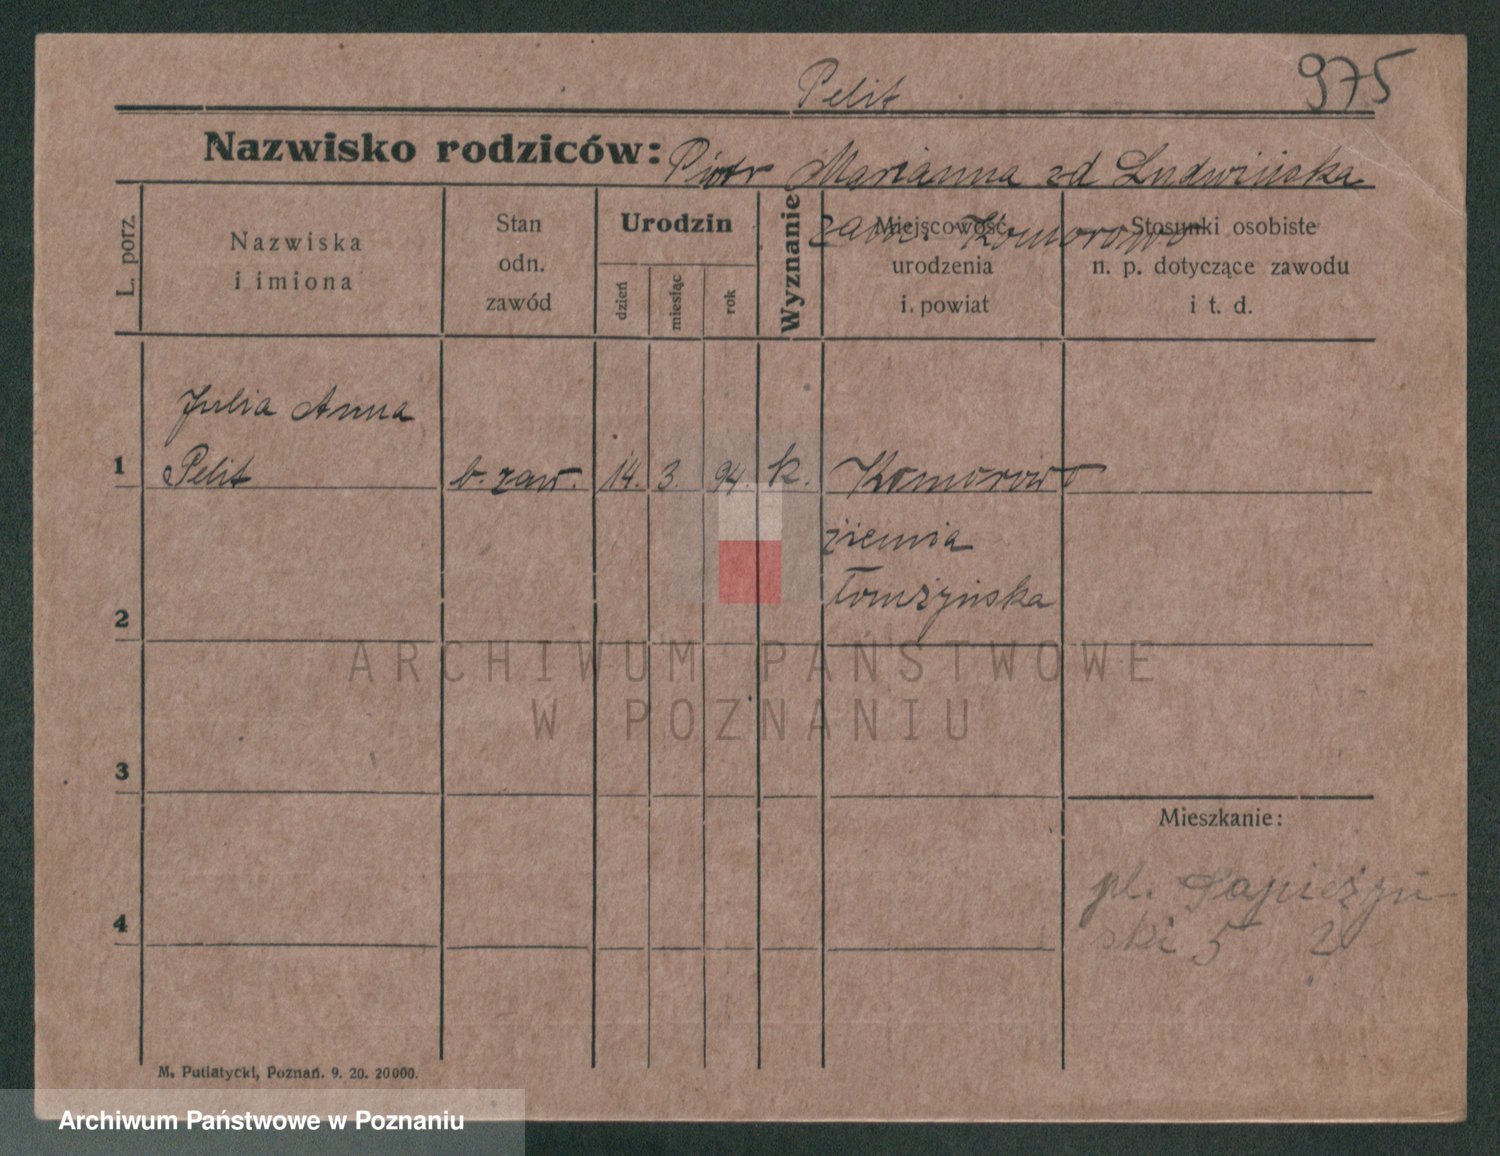 Pelit
975
Nazwisko rodziców: Piotr Marianna zd Ludwińska
zam. Komorowo
L. porz.
Nazwiska
i imiona
Stan
odn.
zawód
Urodzin
dzień
miesiąc
rok
Wyznanie
Miejscowość
urodzenia
i. powiat
Stosunki osobiste
n. p. dotyczące zawodu
i t. d.
Julia Anna
1 Pelit b. zaw. 14. 3. 94. k. Komorowo
ziemia
2 łomżyńska
ARCHIWUM PAŃSTWOWE
W POZNANIU
3
Mieszkanie:
pl. Sapieżyń-
4 ski 5 2
M. Putiatycki, Poznań. 9. 20. 20000.
Archiwum Państwowe w Poznaniu